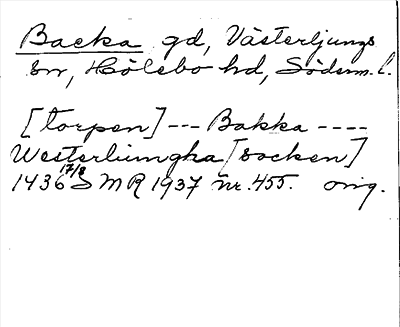 Backa gd, Västerljungs
sn, Hölebo hd, Söderm. l.
[torpen] --- Bakka ----
Westerliungha [socken]
1436 17/8 SMR 1937 nr. 455. orig.